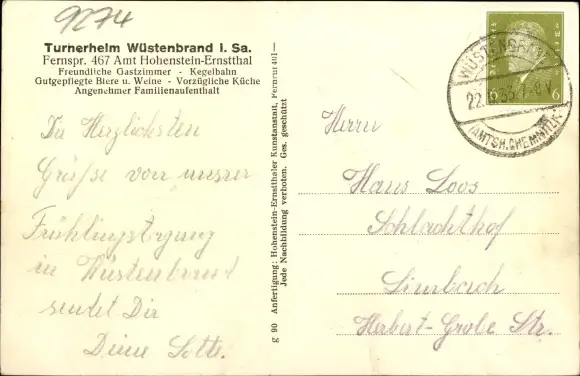 9274
Turnerheim Wüstenbrand i. Sa.
Fernspr. 467 Amt Hohenstein-Ernstthal
Freundliche Gastzimmer - Kegelbahn
Gutgepflegte Biere u. Weine - Vorzügliche Küche
Angenehmer Familienaufenthalt
Die Herzlichsten
Grüße von unsrer
Frühlingstagung
in Wüstenbrand
sendet Dir
Deine Lotte.
g 90 Anfertigung: Hohenstein-Ernstthaler Kunstanstalt, Fernruf 401
Jede Nachbildung verboten. Ges. geschützt
WÜSTENBRAND
(AMTSH. CHEMNITZ)
6 6
Herrn
Hans Loos
Schlachthof
Limbach
Herbert-Grobe Str.